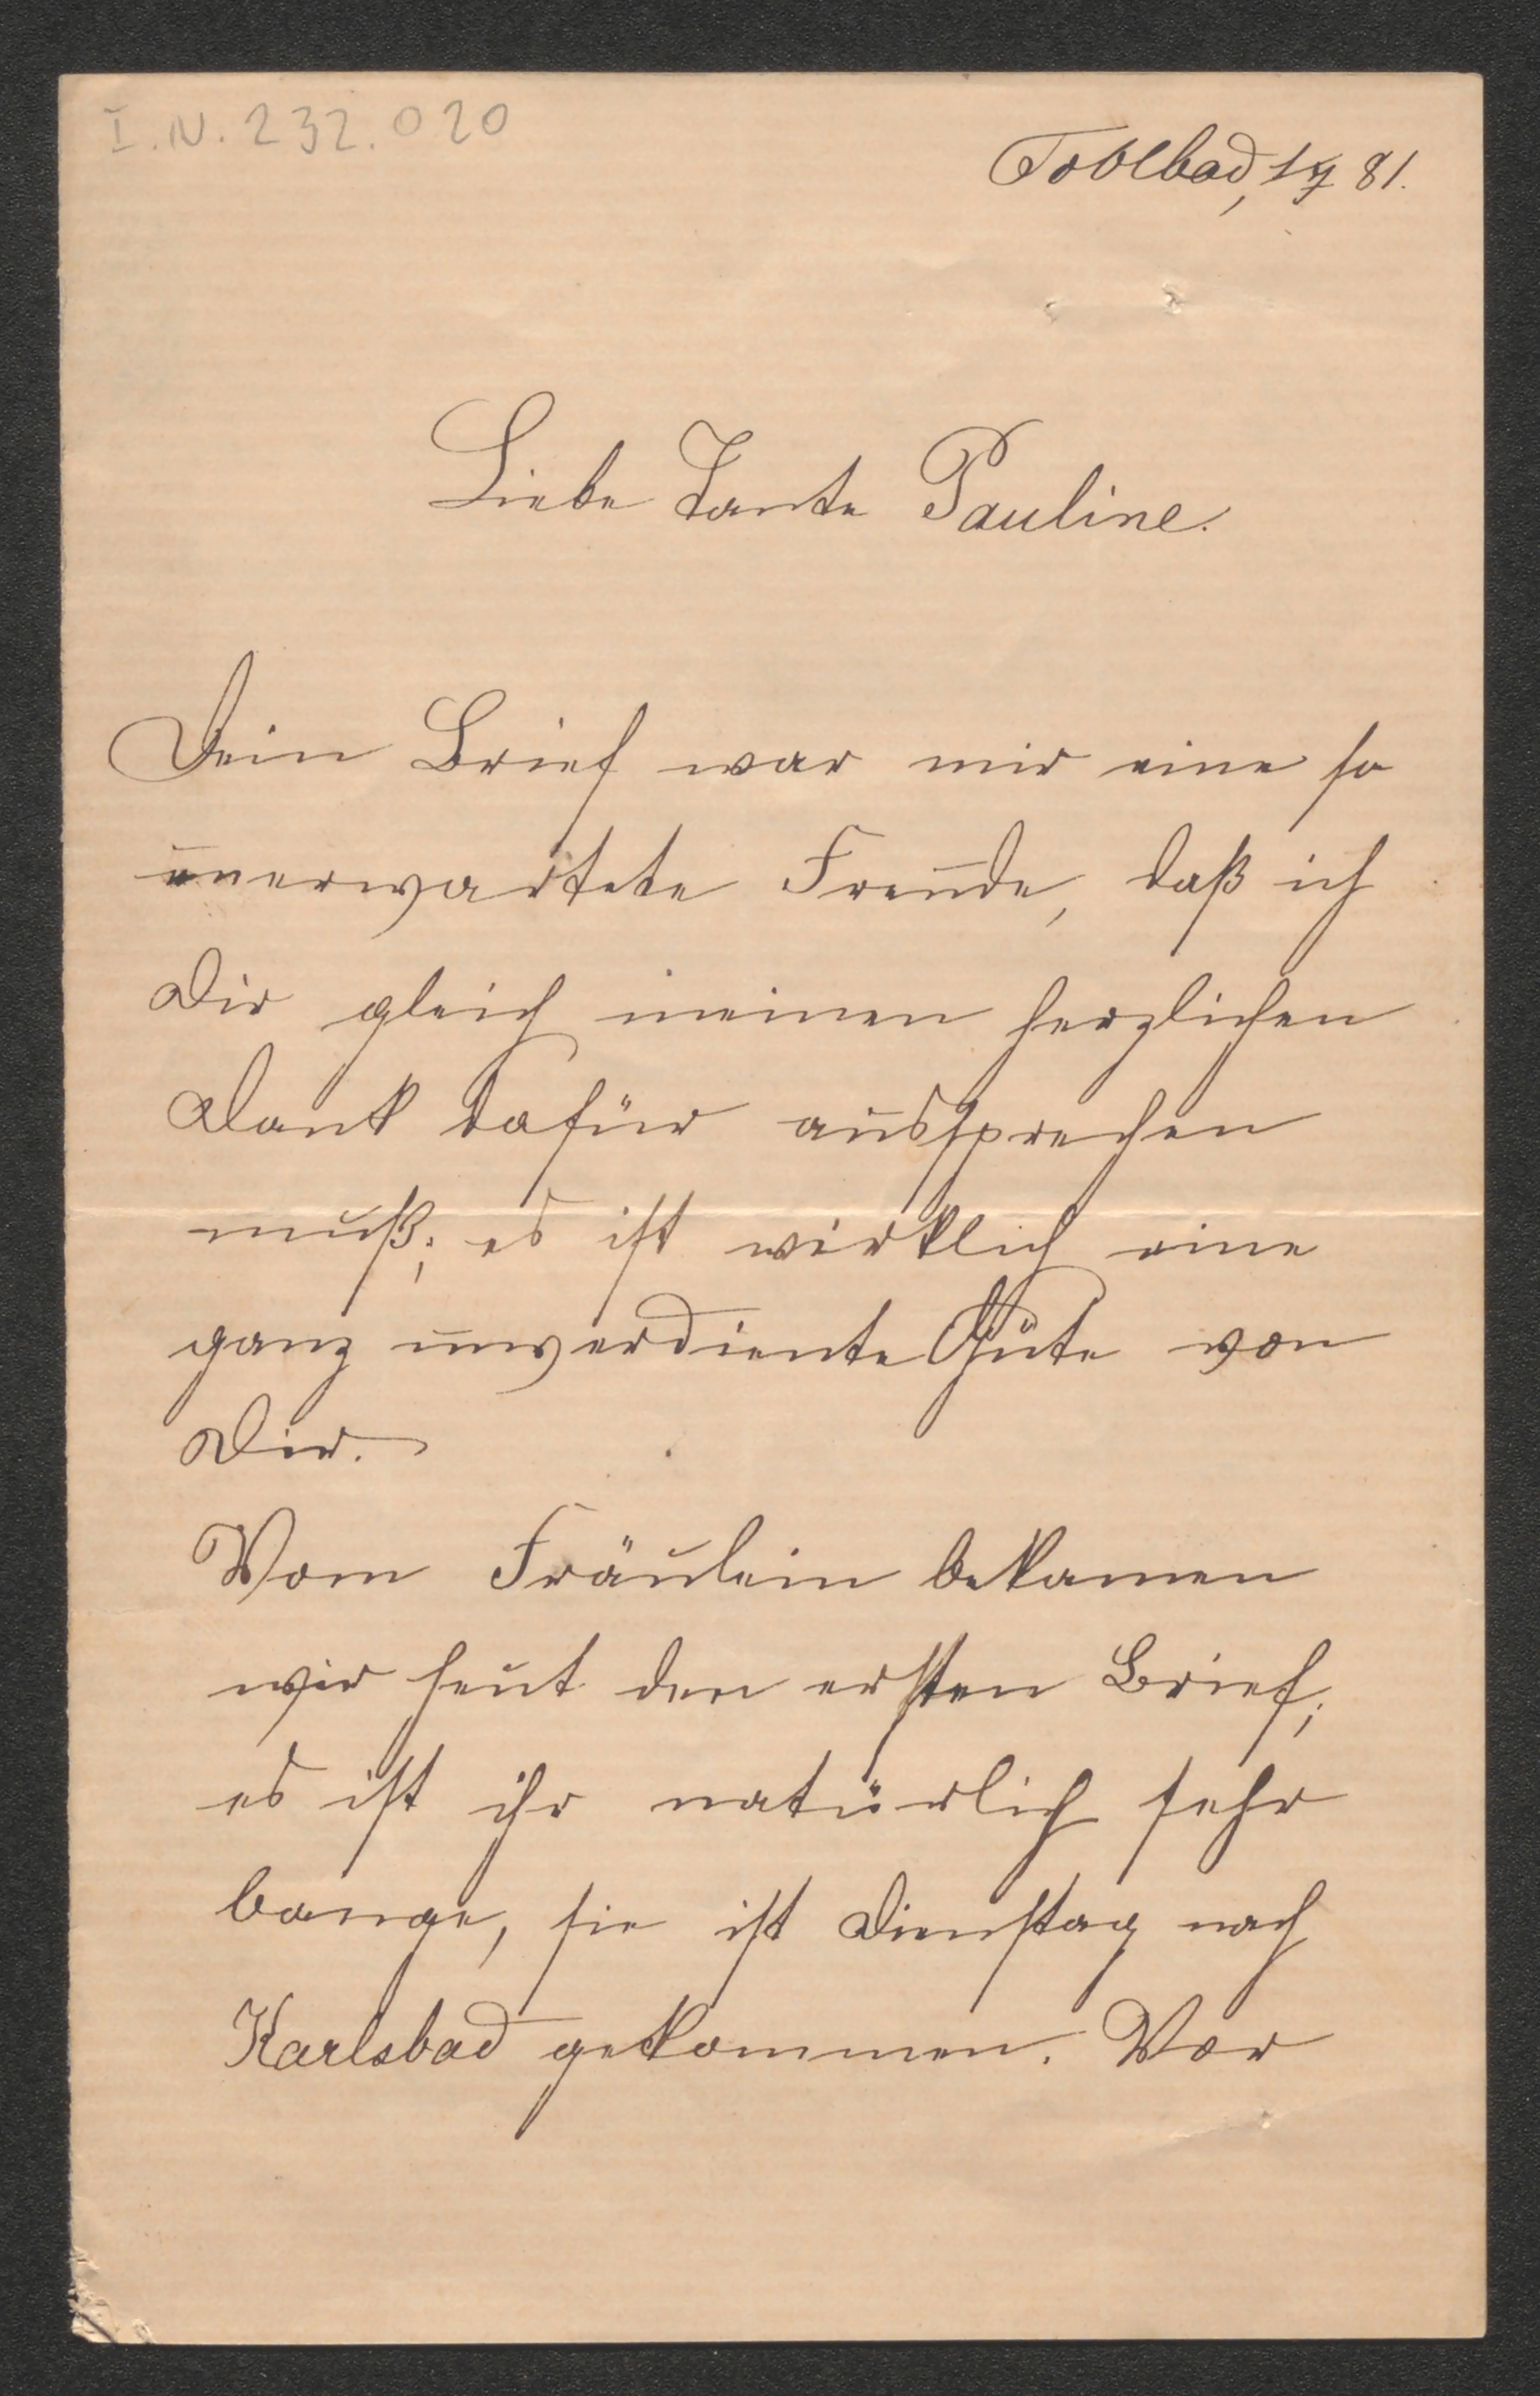 I.N. 232.020
Toblbad, 1/7 81.
Liebe Tante Pauline.
Dein Brief war mir eine so
unerwartete Freude, daß ich
Dir gleich meinen herzlichen
Dank dafür aussprechen
muß; es ist wirklich eine
ganz unverdiente Güte von
Dir.
Vom Fräulein bekamen
wir heut den ersten Brief;
es ist ihr natürlich sehr
bange, sie ist Dienstag nach
Karlsbad gekommen. Vor